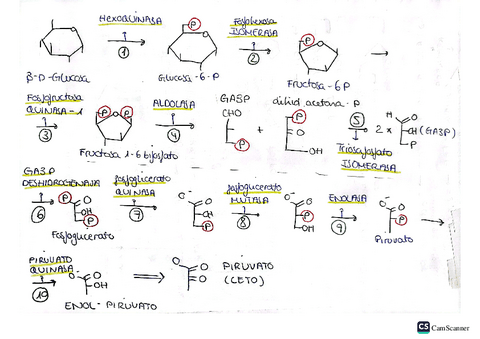 HEXOQUINASA
Fosfohexosa
ISOMERASA
P
P
1
2
β-D-Glucosa
Glucosa-6-P
Fructosa-6P
Fosfofructosa
QUINASA-1
ALDOLASA
GA3P
dihid acetona-P
P
P
CHO
P
5
H
O
2 x
CH (GA3P)
P
3
4
P
+
O
OH
Triosafosfato
ISOMERASA
Fructosa 1-6 bifosfato
GA3P
DESHIDROGENASA
fosfoglicerato
QUINASA
fosfoglicerato
MUTASA
ENOLASA
6
P
O
OH
P
7
O⁻
O
OH
P
8
O⁻
O
P
OH
9
O⁻
O
P
Fosfoglicerato
Piruvato
PIRUVATO
QUINASA
10
O⁻
O
OH
O⁻
O
O
PIRUVATO
(CETO)
ENOL-PIRUVATO
CS CamScanner